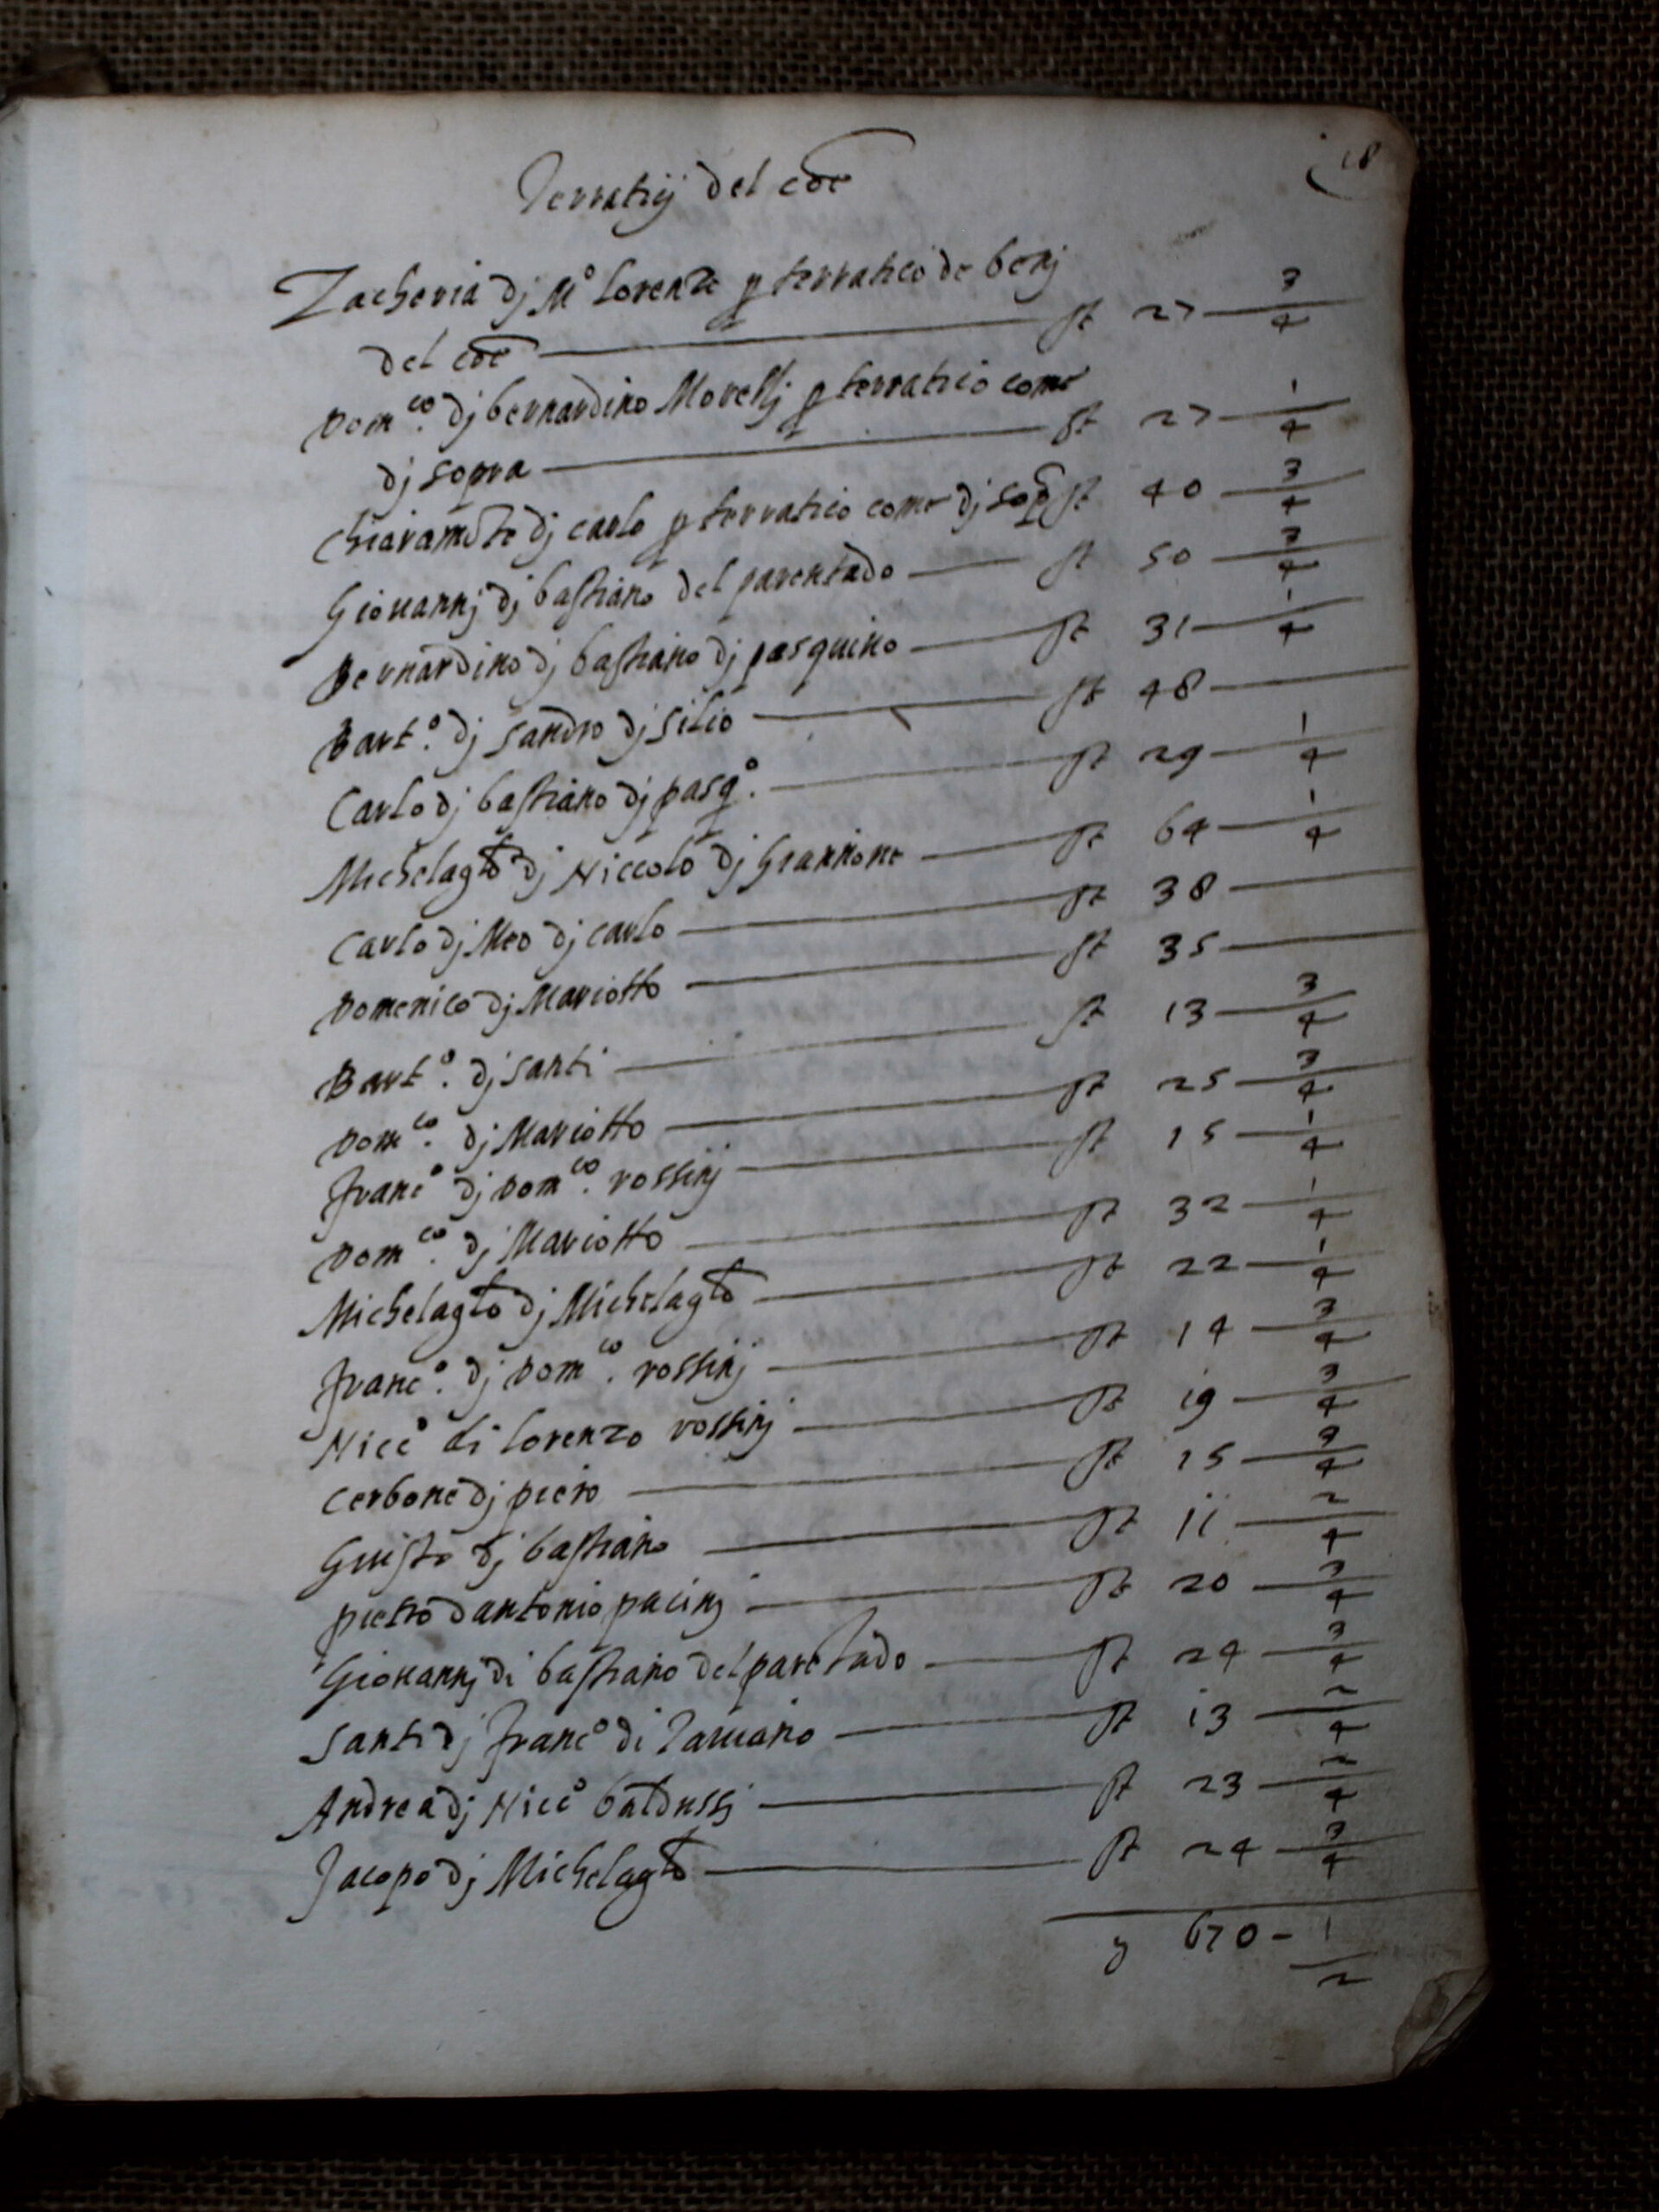 18
Terratij del coe
Zacheria dj Mo Lorenzo p terratico de benj
del coe — st 27 3/4
Domco. dj bernardino Morellj p terratico come
dj sopra — st 27 1/4
Chiaramōte dj carlo p terratico come dj sop st 40 3/4
Giouannj dj bastiano del parentado — st 50 3/4
Bernardino dj bastiano dj pasquino — st 31 1/4
Barto. dj sandro dj silio — st 48 —
Carlo dj bastiano dj pasqo. — st 29 1/4
Michelaglo dj Niccolo dj Giannone — st 64 1/4
Carlo dj Meo dj carlo — st 38 —
Domenico dj Mariotto — st 35 —
Barto. dj santi — st 13 3/4
Domco. dj Mariotto — st 25 3/4
franco dj Domco. rossinj — st 15 1/4
Domco. dj Mariotto — st 32 1/4
Michelaglo dj Michelaglo — st 22 1/4
franco. dj Domco. rossinj — st 14 3/4
Nicco di Lorenzo rossinj — st 19 3/4
Cerbone dj piero — st 15 3/4
Giusto dj bastiano — st 11 2/4
pietro dantonio pacinj — st 20 3/4
Giouannj di bastiano del parētado — st 24 3/4
Santi dj franco di — st 13 2/4
Andrea dj Nicco baldussj — st 23 2/4
Jacopo dj Michelaglo — st 24 3/4
670 - 1/2